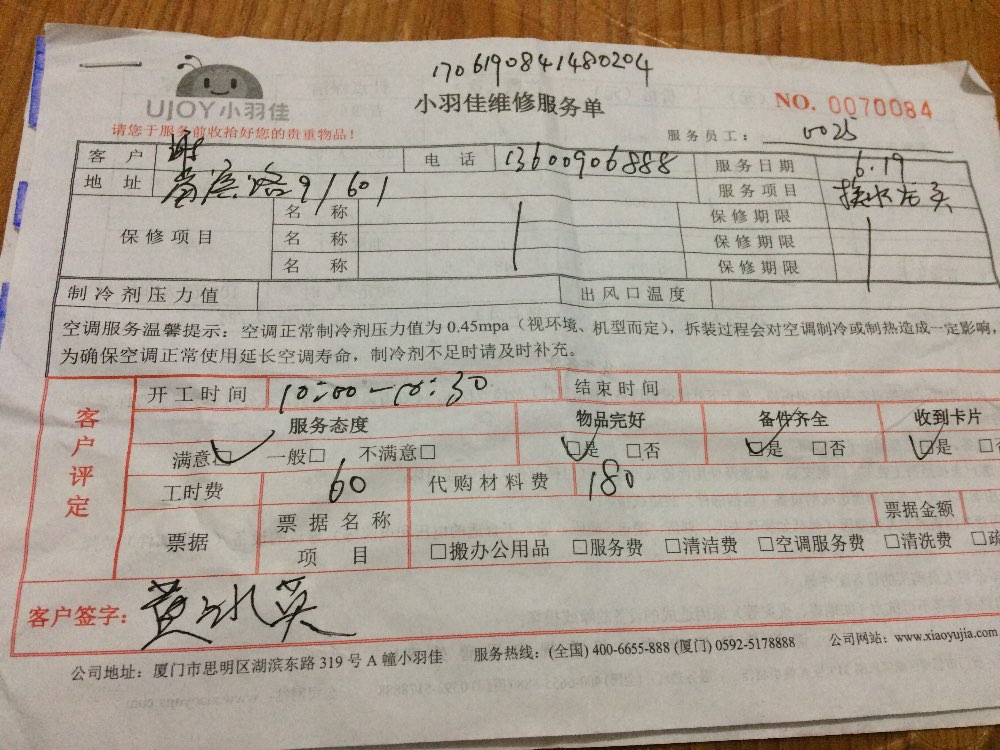 1706190841480204
UJOY小羽佳
小羽佳维修服务单
NO. 0070084
请您于服务前收拾好您的贵重物品！
服务员工： 0025
客 户 谢 电 话 13600906888 服务日期 6.19
地 址 路91601 服务项目 换水龙头
保修项目 名 称 保修期限
名 称 保修期限
名 称 保修期限
制冷剂压力值 出风口温度
空调服务温馨提示：空调正常制冷剂压力值为 0.45mpa（视环境、机型而定），拆装过程会对空调制冷或制热造成一定影响，
为确保空调正常使用延长空调寿命，制冷剂不足时请及时补充。
客户评定
开工时间 10:00-10:30 结束时间
服务态度 物品完好 备件齐全 收到卡片
满意□ 一般□ 不满意□ □是 □否 □是 □否 □是 □否
工时费 60 代购材料费 180
票据 票据名称 票据金额
项 目 □搬办公用品 □服务费 □清洁费 □空调服务费 □清洗费 □疏
客户签字： 黄冰英
公司地址：厦门市思明区湖滨东路 319 号 A 幢小羽佳 服务热线：(全国) 400-6655-888 (厦门) 0592-5178888 公司网站：www.xiaoyujia.com